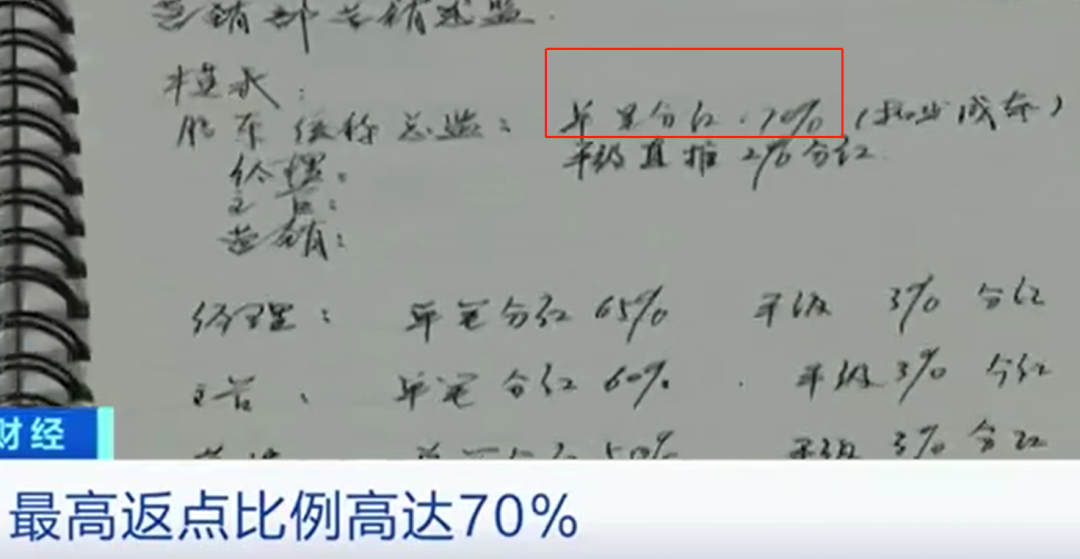 营销部营销总监
模式:
股东 级称 总监: 单笔分红:70% (扣出成本)
平级直推 2% 分红
经理:
主管:
营销:
经理: 单笔分红 65% 平级 3% 分红
主管: 单笔分红 60% 平级 3% 分红
50% 平级 3% 分红
财经
最高返点比例高达70%